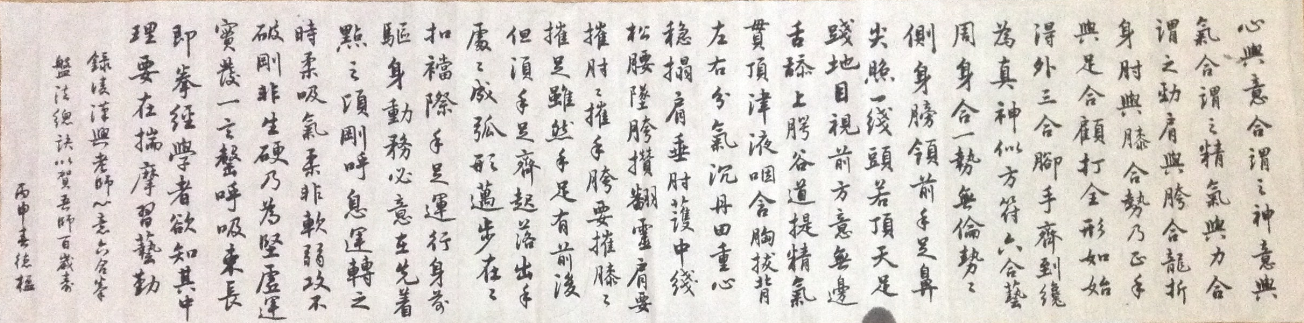 心與意合謂之神意與
氣合謂之精氣與力合
謂之勁肩與胯合龍折
身肘與膝合勢乃正手
與足合顧打全形如始
得外三合腳手齊到纔
為真神似方符六合藝
周身合一勢無倫勢〻
側身膀領前手足鼻
尖照一綫頭若頂天足
踐地目視前方意無邊
舌舔上腭谷道提精氣
貫頂津液咽含胸拔背
左右分氣沉丹田重心
稳搨肩垂肘護中綫
松腰墜胯攢翻靈肩要
摧肘〻摧手胯要摧膝〻
摧足雖然手足有前後
但須手足齊起落出手
處〻成弧形邁步在〻
扣襠際手足運行身為
驅身動務必意在先着
點之頃剛呼息運轉之
時柔吸氣柔非軟弱攻不
破剛非生硬乃為堅虛運
實發一言罄呼吸束長
即拳經學者欲知其中
理要在揣摩習藝勤
錄凌漢興老師心意六合拳
盤法總訣以賀吾師百歲壽
丙申春德